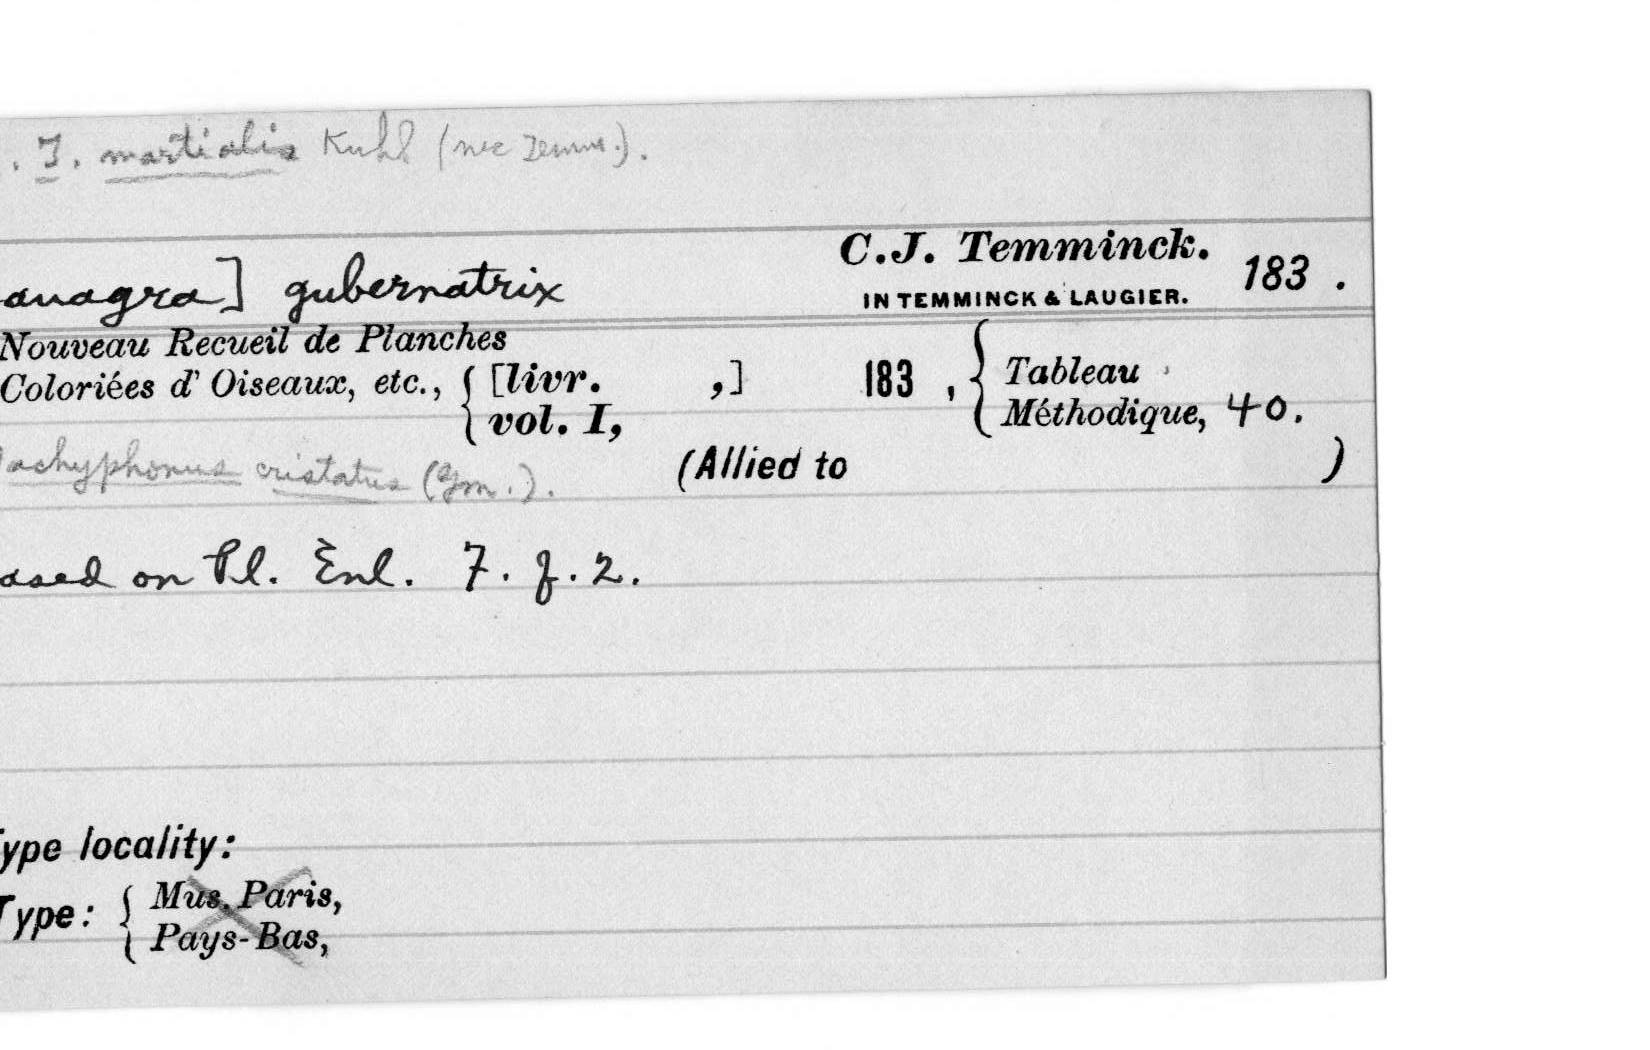 . T. martialis Kuhl (nec Temm.).
anagra] gubernatrix C.J. Temminck. 183 .
IN TEMMINCK & LAUGIER.
Nouveau Recueil de Planches
Coloriées d' Oiseaux, etc., { [livr. ,] 183 , { Tableau
vol. I, Méthodique, 40.
achyphonus cristatus (Gm.). (Allied to )
ased on Pl. Enl. 7. f. 2.
ype locality:
Type: { Mus. Paris,
Pays-Bas,